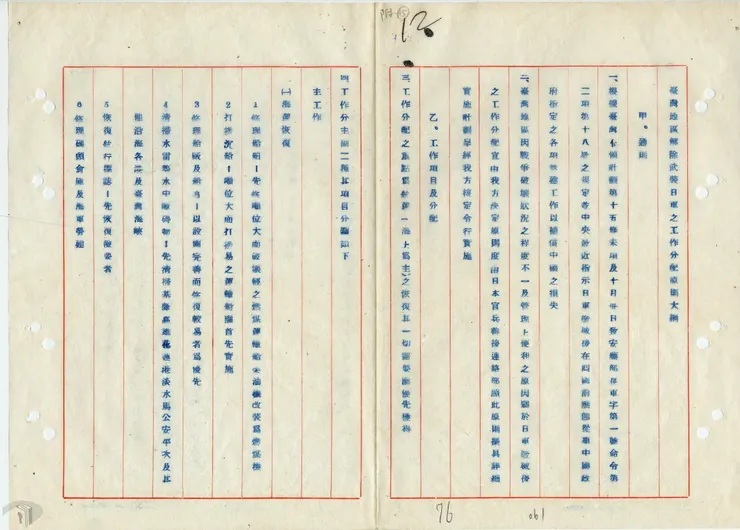 臺灣地區解除武裝日軍之工作分配原則大綱
甲、總則
一、根據臺灣佔領計劃第十五條末項及十月卅日發安藤部存軍字第一號命令第
二項第十八條之規定等中央最近指示日軍繳械後在回國前應服從我中國政
府指定之各項整建工作以補償中國之損失
二、臺灣地區因戰爭破壞狀況之程度不一及管理上便利之原因關於日軍繳械後
之工作分配宜由我方決定原則度由日本官兵善後連絡部照此原則擬具詳細
實施計劃呈經我方核定令行實施
乙、工作項目及分配
三、工作分配之重點爲交通(海上爲主)之恢復其一切需要應優先機
四、工作分主副二種其項目分別如下
主工作
㈠海運恢復
1 修理船舶—先修噸位大而破壞輕之燃煤運輸船
2 打撈沉船—噸位大而打撈易之運輸船應首先實施
3 修理船廠及船塢—以設備完善而修復較易者爲優先
4 清掃水雷等水中障碍物—先清掃基隆高雄花蓮港淡水馬公安平次及其
他沿海各港及臺灣海峽
5 恢復航行標誌—先恢復最要者
6 修理碼頭倉庫及海軍營建
12
76
061